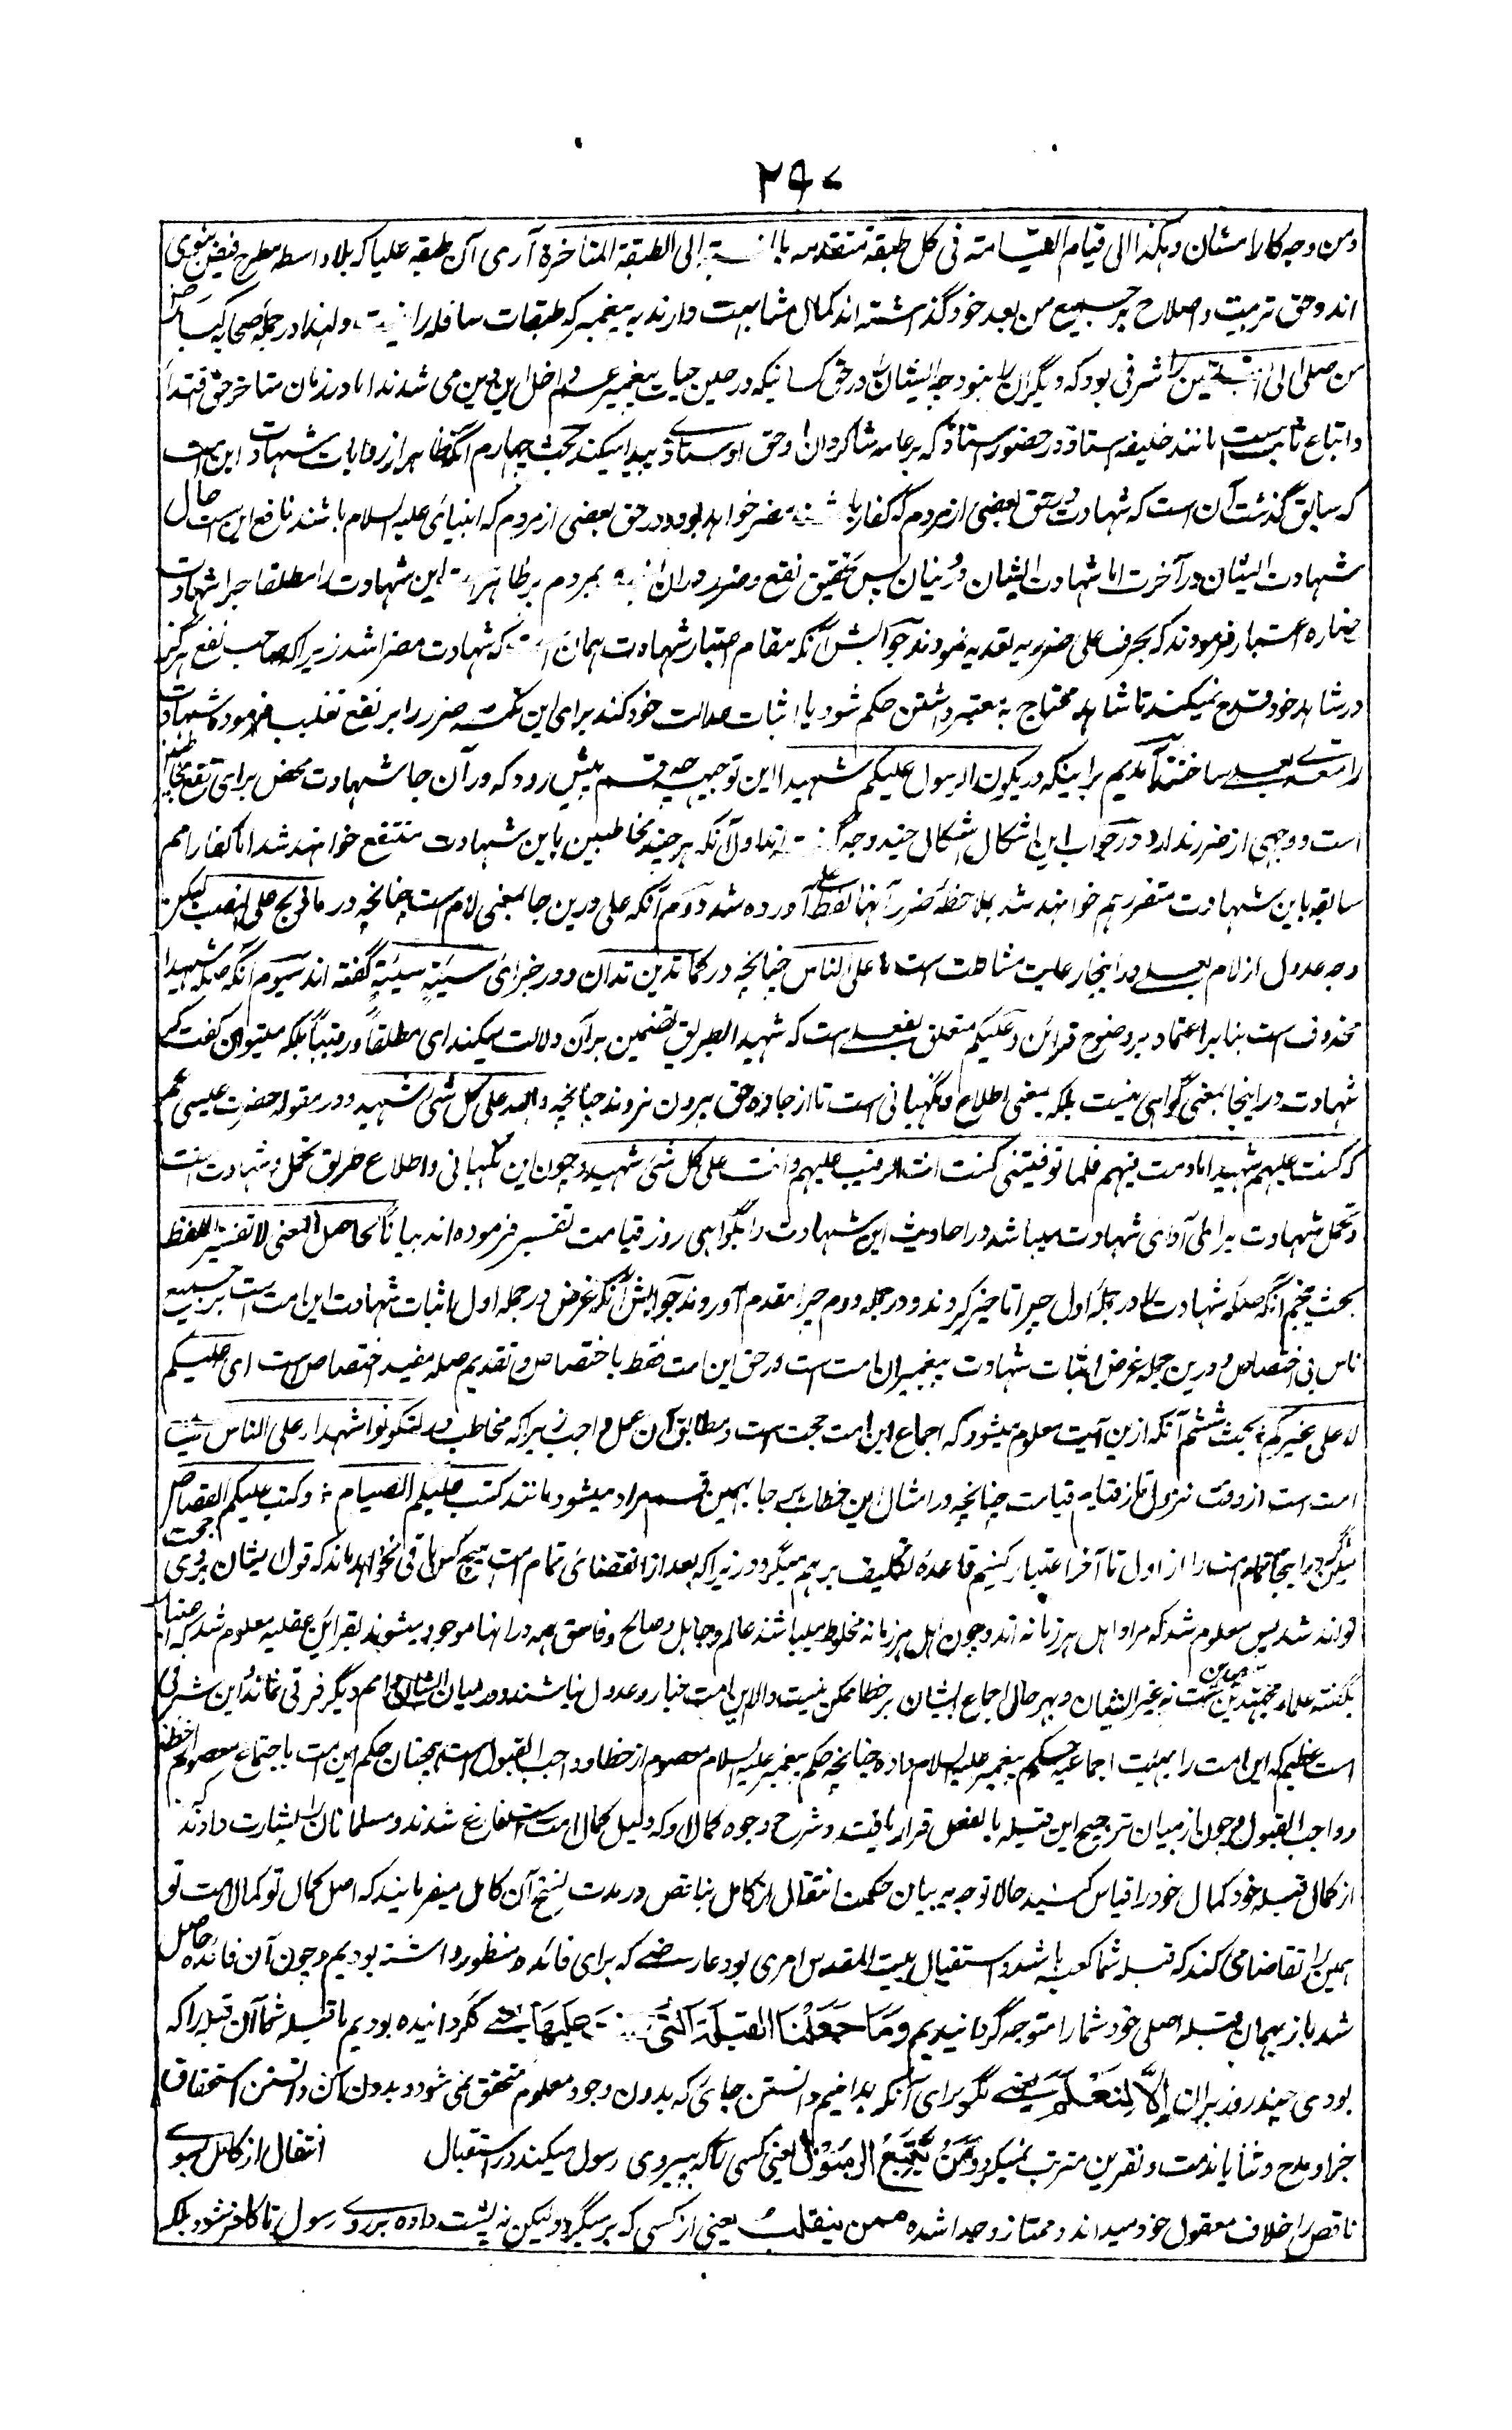 ۲۹۰
ومن وجه کالامتثان وهکذا الی قیام القیامته فی کل طبقة متقدمه بالنسبة الی الطبقة المتاخرة آری آن طبقه علیا که بلا واسطه مطرح فیض نبوی
اند وحق تربیت واصلاح بر جمیع من بعد خود گذاشته اند کمال مشابهت دارند به پیغمبر که طبقات سافله را نیست ولهذا در جمله صحابه کبار
من صلی الی القبلتین را شرفی بود که دیگران را نبود چه ایشان در حق کسانیکه در حین حیات پیغمبر علیه السلام داخل این دین می شدند اما در زمان متاخر حق اقتدا
واتباع ثابت است مانند خلیفه استاد در حضور استاد که بر عامه شاگردان او حق اوستادی پیدا میکند بحث چهارم آنکه ظاهر از روایات شهادت این است
که سابق گذشت آن است که شهادت در حق بعضی از مردم که کفار باشند مضر خواهد بود ودر حق بعضی از مردم که انبیای علیه السلام باشند نافع این است حال
شهادت ایشان در آخرت اما شهادت ایشان در دنیان پس تحقیق نفع وضرر در آن نسبت بمردم پر ظاهر است این شهادت را مطلقا چرا شهادت
ضاره اعتبار فرمودند که بحرف علی ضرریه تعدیه نمودند جوابش آنکه مقام اعتبار شهادت همان است که شهادت مضر باشد زیرا که صاحب نفع هرگز
در شاهد خود قدح نمیکند تا شاهد محتاج به معتبر داشتن حکم شود یا اثبات عدالت خود کند برای این نکته ضرر را بر نفع تغلیب فرمود شهادت
را متعدی بعلی ساختند آمدیم براینکه در یکون الرسول علیکم شهیدا این توجیه چه قسم پیش رود که در آن جا شهادت محض برای نفع مخاطبین
است ووجهی از ضرر ندارد در جواب این اشکال اشکال چند وجه گفته اند اول آنکه هر چند مخاطبین باین شهادت منتفع خواهند شد اما کفار امم
سابقه باین شهادت متضرر هم خواهند شد بملاحظه ضرر آنها لفظ علی آورده شد دوم آنکه علی درین جا بمعنی لام است چنانچه در ما ذبح علی النصب لیکن
وجه عدول از لام بعلی در اینجا رعایت مشاکلت است با علی الناس چنانچه در کما تدین تدان ودر جزای سیئة سیئة گفته اند سیوم آنکه صله شهیدا
محذوف است بنا بر اعتماد بر وضوح قرائن وعلیکم متعلق بفعلی است که شهیدا بطریق تضمین بر آن دلالت میکند ای مطلقا ورقیبا بلکه میتوان گفت که
شهادت در اینجا بمعنی گواهی نیست بلکه بمعنی اطلاع ونگهبانی است تا از جاده حق بیرون نروند چنانچه والله علی کل شئ شهید ودر مقوله حضرت عیسی هم
که کنت علیهم شهیدا ما دمت فیهم فلما توفیتنی کنت انت الرقیب علیهم وانت علی کل شئ شهید وچون این نگهبانی واطلاع طریق تحمل شهادت است
وتحمل شهادت برای ادای شهادت میباشد در احادیث این شهادت را بگواهی روز قیامت تفسیر فرموده اند بیانا لحاصل المعنی لا تفسیر اللفظ
بحث پنجم آنکه صله شهادت را در جمله اول چرا تاخیر کردند ودر جمله دوم چرا مقدم آوردند جوابش آنکه غرض در جمله اول اثبات شهادت این امت است بر جمیع
ناس بی اختصاص ودرین جمله غرض اثبات شهادت پیغمبر این امت است در حق این امت فقط باختصاص وتقدیم صله مفید اختصاص است ای علیکم
لا علی غیرکم بحث ششم آنکه ازین آیت معلوم میشود که اجماع این امت حجت است ومطابق آن عمل واجب زیرا که مخاطب در لتکونوا شهداء علی الناس
امت است از وقت نزول تا زقایم قیامت چنانچه در امثال این خطاب هر جا بهمین قسم مراد میشود مانند کتب علیکم الصیام وکتب علیکم القصاص
لیکن در اینجا تمام امت را از اول تا آخر اعتبار کنیم قاعدۀ تکلیف برهم میگردد زیرا که بعد از انقضای تمام امت هیچ کس باقی نخواهد ماند که قول ایشان بر وی حجت
تواند شد پس معلوم شد که مراد اهل هر زمانه اند وچون اهل هر زمانه مخلوط میباشند عالم وجاهل وصالح وفاسق همه در انها موجود میشوند بقرائن عقلیه معلوم شد که اعتبار
بگفته علماء مجتهدین متدین است نه غیر ایشان وبهر حال اجماع ایشان بر خطا ممکن نیست والا این امت خیار وعدول نباشند ودر میان ایشان امم دیگر فرقی نماند واین شرفی
است عظیم که این امت را بهیئت اجماعیه حکم پیغمبر علیه السلام داده چنانچه حکم پیغمبر علیه السلام معصوم از خطا وواجب القبول است همچنان حکم این امت باجتماع معصوم از خطا
وواجب القبول وچون از میان ترجیح این قبله بالفعل قرار یافت وشرح وجوه کمال او که دلیل کمال امت است فارغ شدند ومسلمانان را بشارت دادند که
از کمال قبله خود کمال خود را قیاس کنید حالا توجه به بیان حکمت انتقال از کامل بناقص در مدت نسخ آن کامل میفرمایند که اصل کمال تو کمال امت تو
همین را تقاضا می کند که قبله شما کعبه باشد واستقبال بیت المقدس امری بود عارضی که برای فائده منظور داشته بودیم وچون آن فائده حاصل
شد باز بهمان قبله اصلی خود شما را متوجه گردانیدیم وَمَا جَعَلْنَا الْقِبْلَةَ الَّتِی کُنْتَ عَلَیْهَا یعنی نگردانیده بودیم ما قبله شما آن قبله را که
بودی چند روز بران إِلَّا لِنَعْلَمَ یعنی مگر برای آنکه بدانیم دانستن جای که بدون وجود معلوم متحقق نمی شود وبدون آن دانستن استحقاق
جزا ومدح وثنا یا مذمت ونفرین مترتب نمیگردد مَنْ یَتَّبِعُ الرَّسُوْلَ یعنی کسی را که پیروی رسول میکند در استقبال انتقال از کامل بسوی
ناقص را خلاف معقول خود میداند وممتاز وجدا شده ممن ینقلب یعنی از کسی که برمیگردد ولیکن نه پشت داده بروی رسول تا کافر نشود بلکه